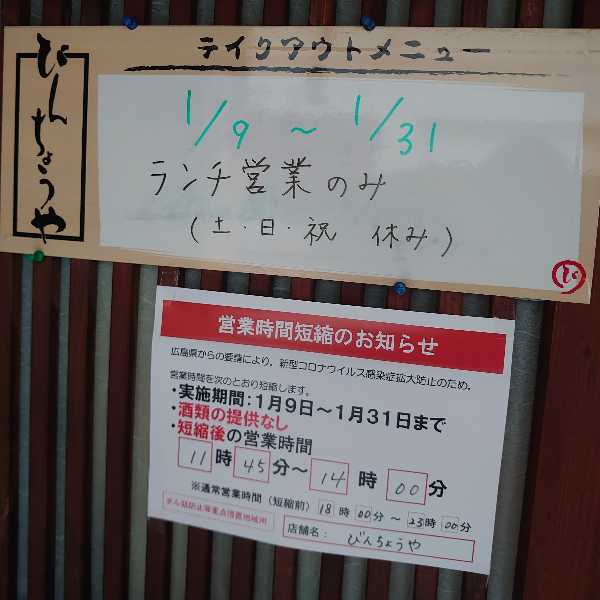 びんちょうや
テイクアウトメニュー
1/9 ~ 1/31
ランチ営業のみ
(土・日・祝 休み)
び
営業時間短縮のお知らせ
広島県からの要請により、新型コロナウイルス感染症拡大防止のため、
営業時間を次のとおり短縮します。
・実施期間:1月9日~1月31日まで
・酒類の提供なし
・短縮後の営業時間
11時45分~14時00分
※通常営業時間(短縮前)18時00分~23時00分
店舗名: びんちょうや